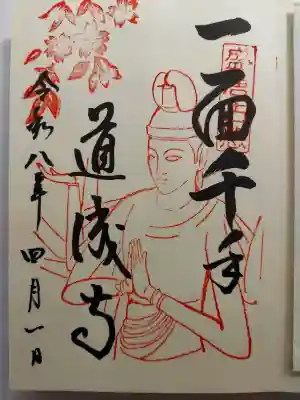 一面千手
道成寺
令和八年 四月一日